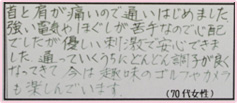 首と肩が痛いので通いはじめました
強い電気やほぐしが苦手なので心配
でしたが優しい刺激で安心できま
した。通っていくうちにどんどん調子が良く
なってきて、今は趣味のゴルフやカメラ
も楽しんでいます。
(70代女性)